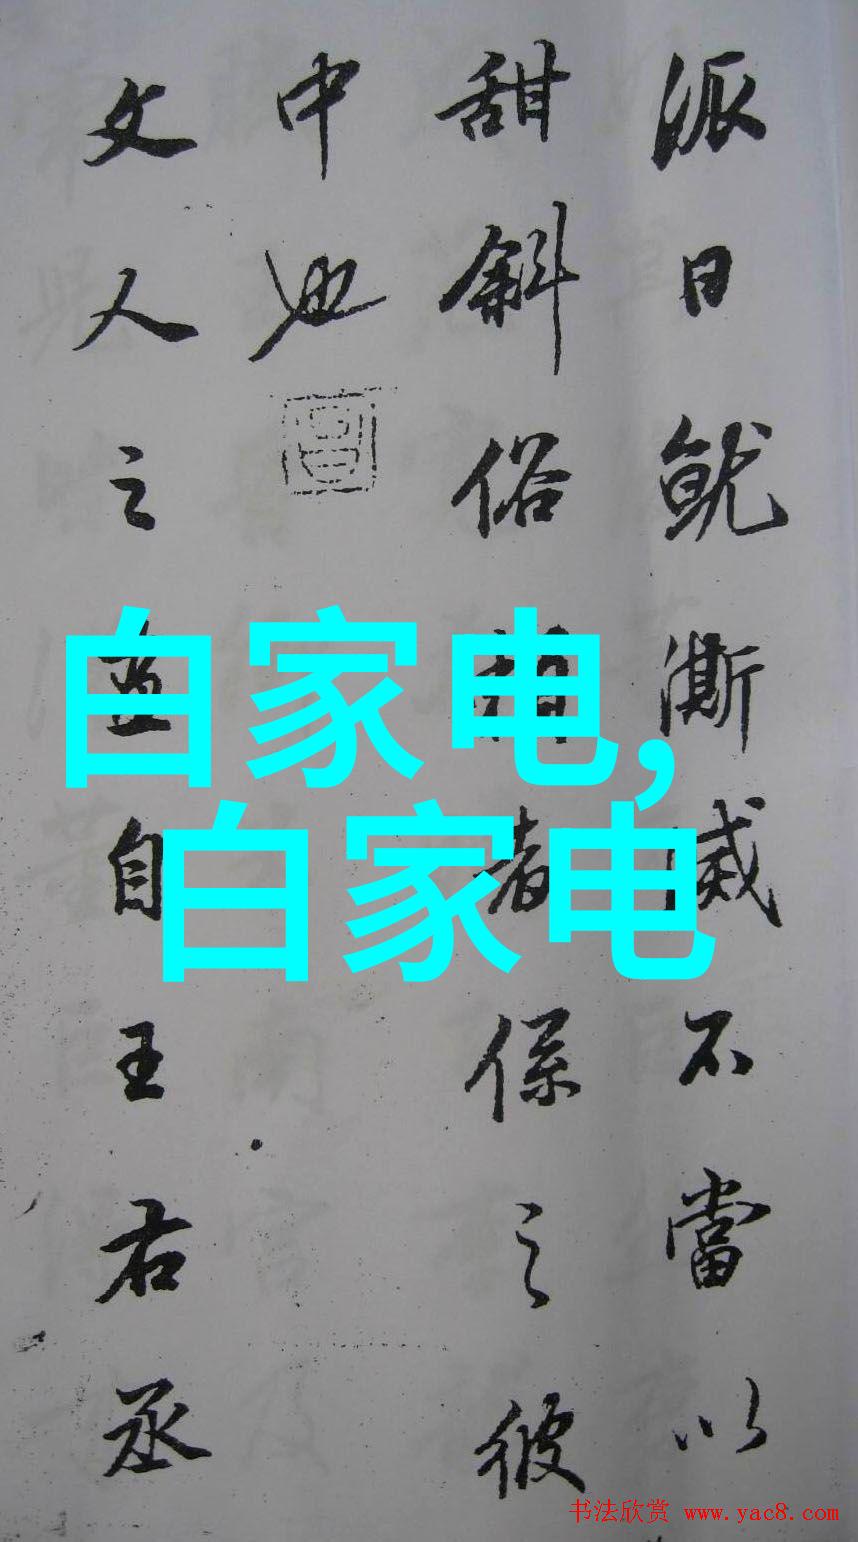 派日就澌滅不當以
甜斜俗者係之彼
中也
文人之畫自王右丞
白家电,
白家电
书法欣赏 www.yac8.com